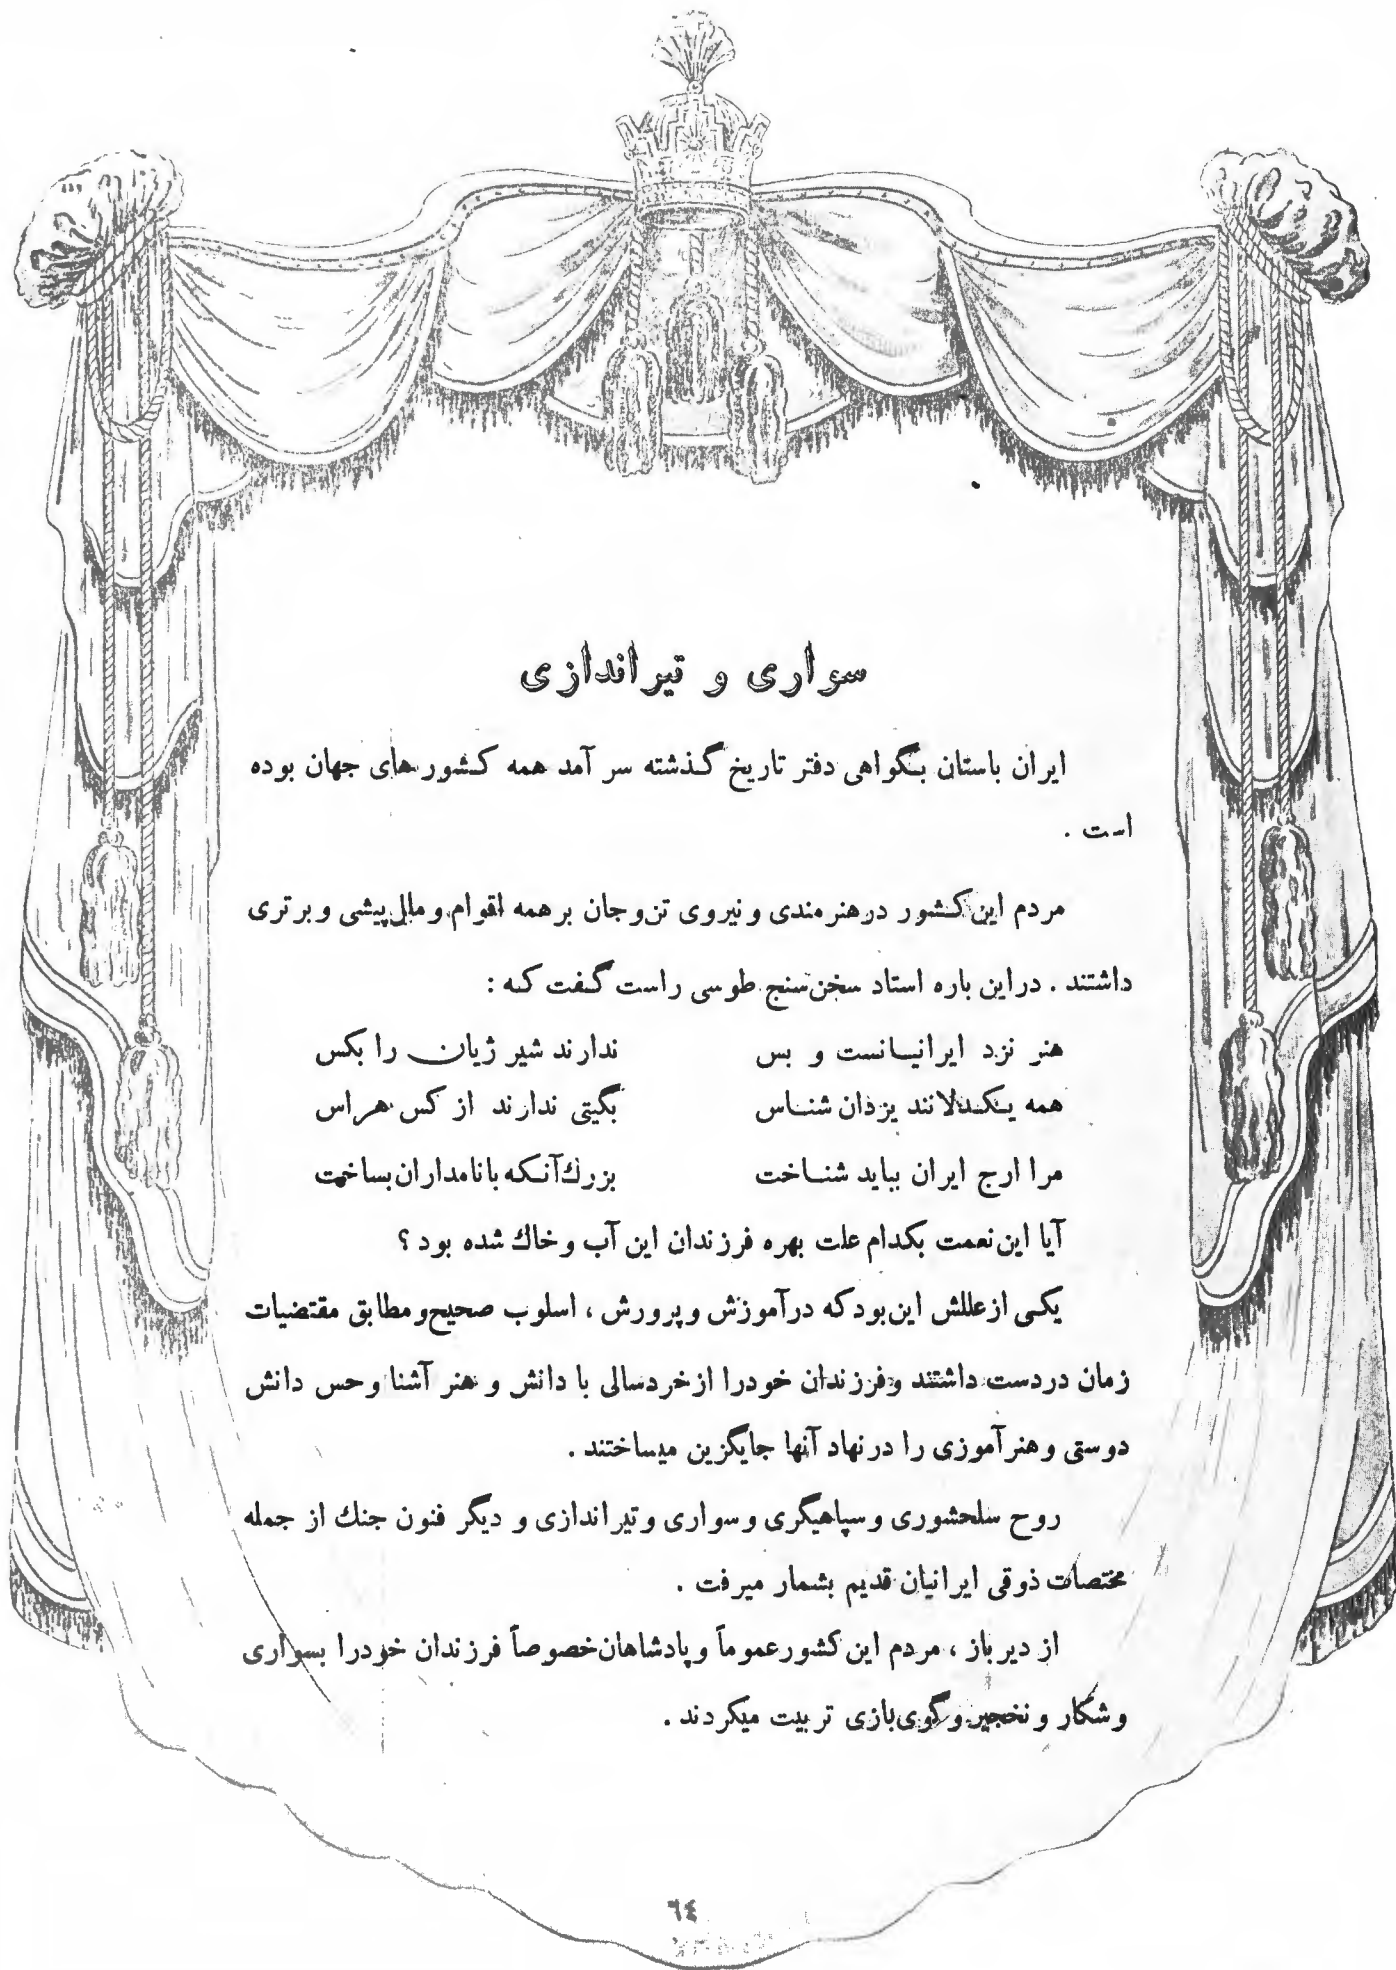 سواری و تیراندازی
ایران باستان بگواهی دفتر تاریخ گذشته سر آمد همه کشور های جهان بوده
است .
مردم این کشور در هنرمندی و نیروی تن و جان بر همه اقوام و ملل پیشی و برتری
داشتند . دراین باره استاد سخن سنج طوسی راست گفت که :
هنر نزد ایرانیانست و بس ندارند شیر ژیان را بکس
همه یکدلانند یزدان شناس بگیتی ندارند از کس هراس
مرا ارج ایران بباید شناخت بزرك آنکه با نامداران بساخت
آیا این نعمت بکدام علت بهره فرزندان این آب و خاك شده بود ؟
یکی از عللش این بود که در آموزش و پرورش ، اسلوب صحیح و مطابق مقتضیات
زمان در دست داشتند و فرزندان خودرا از خردسالی با دانش و هنر آشنا و حس دانش
دوستی و هنرآموزی را در نهاد آنها جایگزین میساختند .
روح سلحشوری و سپاهیگری و سواری و تیراندازی و دیگر فنون جنك از جمله
مختصات ذوقی ایرانیان قدیم بشمار میرفت .
از دیر باز ، مردم این کشور عموماً و پادشاهان خصوصاً فرزندان خودرا بسواری
و شکار و نخجیر و گوی بازی تربیت میکردند .
٦٤